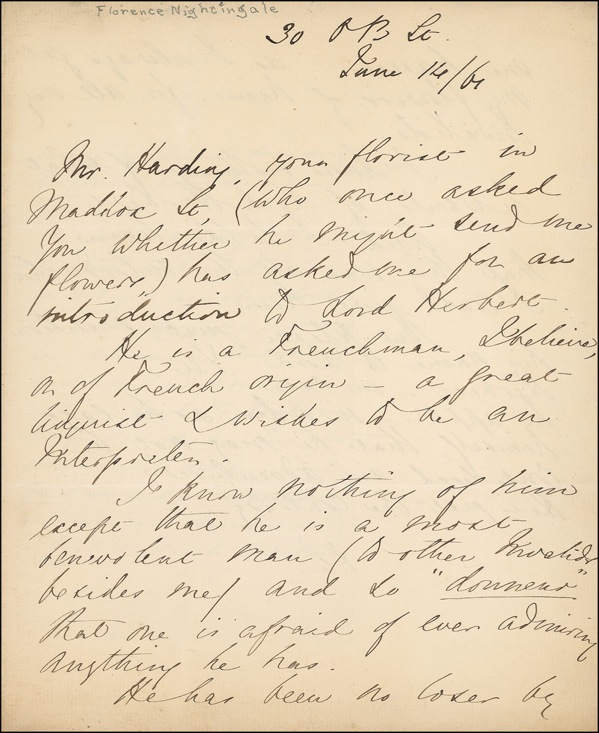 Florence Nightingale
30 O B St.
June 14/61
Mr. Harding, your florist in
Maddox St, (who once asked
you whether he might send me
flowers,) has asked me for an
introduction to Lord Herbert.
He is a Frenchman, I believe,
or of French origin – a great
linguist & wishes to be an
Interpreter.
I know nothing of him
except that he is a most
benevolent man (to other Invalids
besides me) and so "donneur"
that one is afraid of ever admiring
anything he has.
He has been no loser by